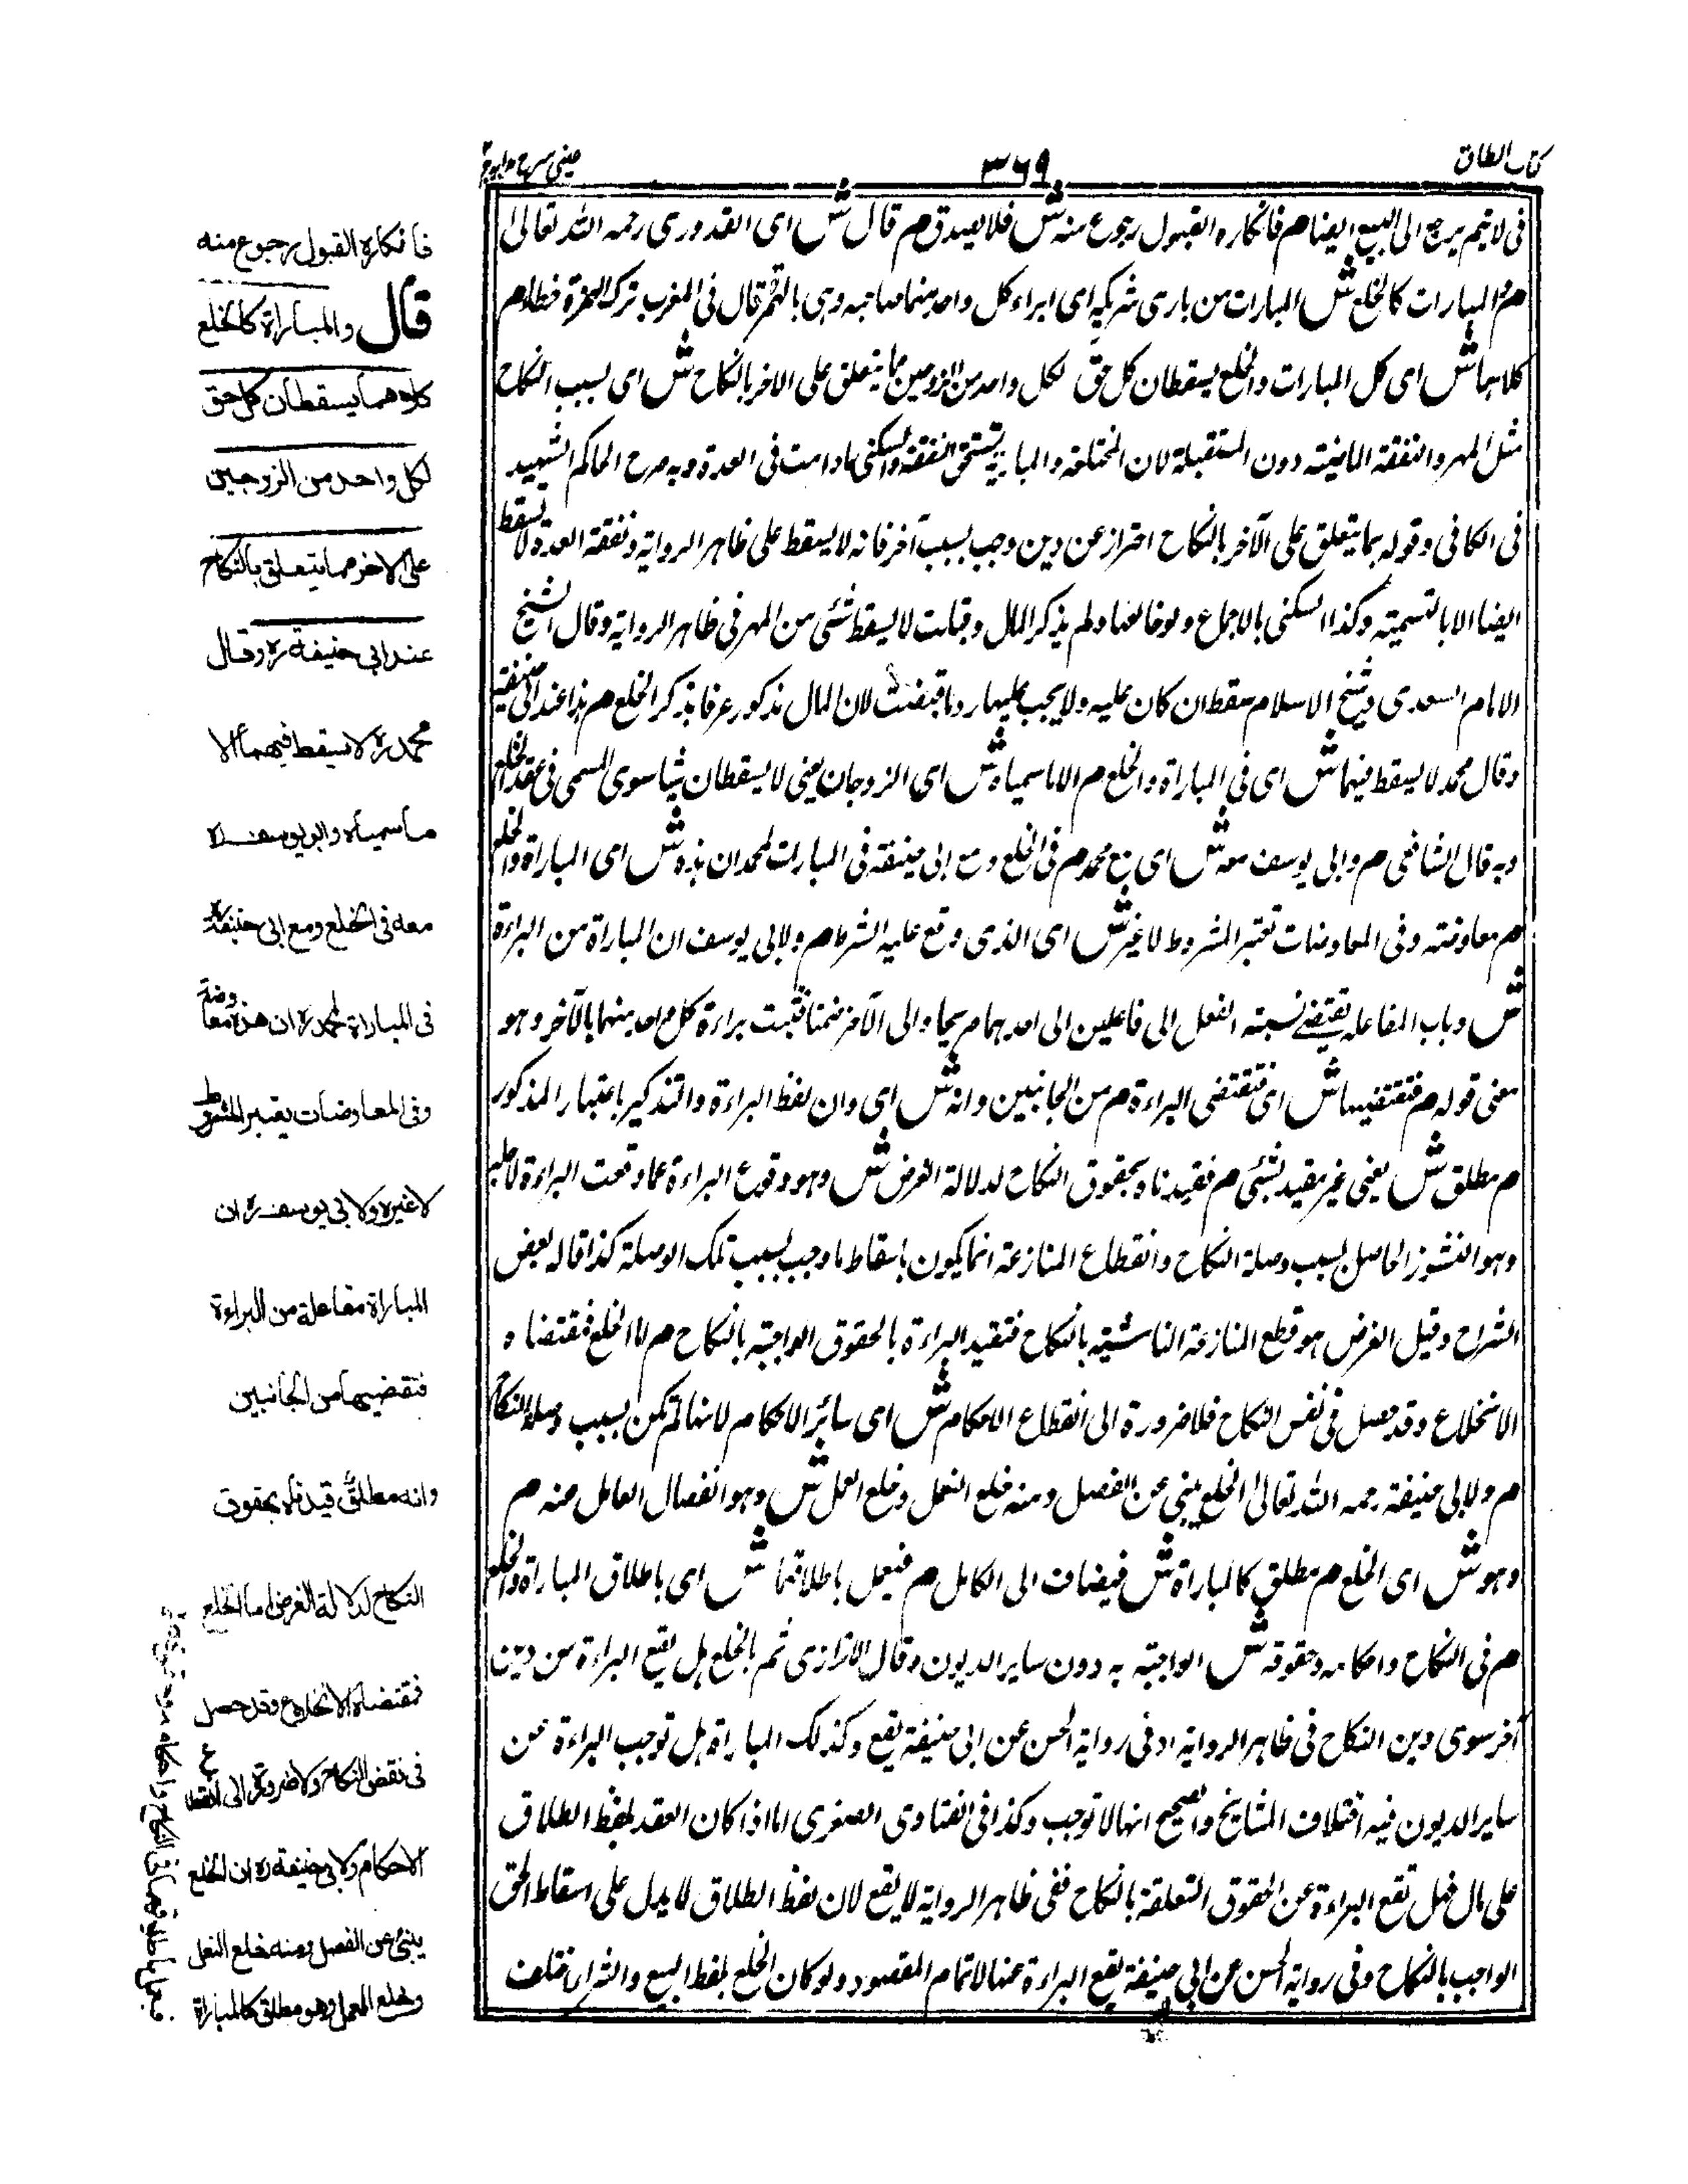 كتاب الطلاق
٣٦٩
عينى شرح هداية ج٢
فى لا يتم يرجع الى البيع ايضا م فانكاره القبول رجوع منه ش فلا يصدق م قال ش اى القدورى رحمه الله تعالى
م والمبارات كالخلع ش المبارات من بارى شريكه اى ابراء كل واحد منهما صاحبه وهى بالهمز قال فى المغرب ترك الهمزة خطا م
كلاهما ش اى كل المبارات والخلع يسقطان كل حق لكل واحد من الزوجين مما يتعلق على الاخر بالنكاح ش اى بسبب النكاح
مثل المهر والنفقة الماضية دون المستقبلة لان المختلعة والمبارية تستحق النفقة والسكنى ما دامت فى العدة وبه صرح الحاكم الشهيد
فى الكافى وقوله بما يتعلق على الآخر بالنكاح احتراز عن دين وجب بسبب آخر فانه لا يسقط على ظاهر الرواية ونفقة العدة لا تسقط
ايضا الا بالتسمية وكذا السكنى بالاجماع ولو خالعها ولم يذكر المال وقبلت لا يسقط شئ من المهر فى ظاهر الرواية وقال الشيخ
الامام السعدى وشيخ الاسلام سقط ان كان عليه ولا يجب عليها رد ما قبضت لان المال مذكور عرفا بذكر الخلع م هذا عند ابى حنيفة
وقال محمد لا يسقط فيهما ش اى فى المباراة والخلع م الا ما سمياه ش اى الزوجان يعنى لا يسقطان شيا سوى المسمى فى عقد الخلع
وبه قال الشافعى م وابى يوسف معه ش اى مع محمد م فى الخلع ومع ابى حنيفة فى المبارات لمحمد ان هذه ش اى المباراة والخلع
م معاوضة وفى المعاوضات تعتبر المشروط لا غير ش اى الذى وقع عليه الشرط م ولابى يوسف ان المباراة من البراءة
ش وباب المفاعلة يقتضى نسبة الفعل الى فاعلين الى احدهما صريحا والى الآخر ضمنا فثبت براءة كل واحد منهما بالآخر وهو
معنى قوله م فتقتضيها ش اى فتقتضى البراءة م من الجانبين وانه ش اى وان لفظ البراءة والتذكير باعتبار المذكور
م مطلق ش يعنى غير مقيد بشئ م فقيدناه بحقوق النكاح لدلالة الغرض ش وهو وقوع البراءة عما وقعت البراءة لاجله
وهو النشوز الحاصل بسبب وصلة النكاح وانقطاع المنازعة انما يكون باسقاط ما وجب بسبب تلك الوصلة كذا قاله بعض
الشراح وقيل الغرض هو قطع المنازعة الناشية بالنكاح فتقيد البراءة بالحقوق الواجبة بالنكاح م اما الخلع فمقتضاه
الانخلاع وقد حصل فى نفس النكاح فلا ضرورة الى انقطاع الاحكام ش اى سائر الاحكام لانها لم تكن بسبب وصلة النكاح
م ولابى حنيفة رحمه الله تعالى الخلع ينبى عن الفصل ومنه خلع النعل وخلع العمل ش وهو انفصال العامل منه م
وهو ش اى الخلع م مطلق كالمباراة ش فيضاف الى الكامل م فيعمل باطلاقهما ش اى باطلاق المباراة والخلع
م فى النكاح واحكامه وحقوقه ش الواجبة به دون ساير الديون وقال الاترازى ثم بالخلع هل يقع البراءة من دين
آخر سوى دين النكاح فى ظاهر الرواية لا وفى رواية الحسن عن ابى حنيفة يقع وكذلك المباراة هل توجب البراءة عن
ساير الديون فيه اختلاف المشايخ والصحيح انها لا توجب وكذا فى الفتاوى الصغرى اما اذا كان العقد بلفظ الطلاق
على مال فهل تقع البراءة عن الحقوق المتعلقة بالنكاح ففى ظاهر الرواية لا يقع لان لفظ الطلاق لا يدل على اسقاط الحق
الواجب بالنكاح وفى رواية الحسن عن ابى حنيفة يقع البراءة عنها لاتمام المقصود ولو كان الخلع بلفظ البيع والشراء اختلف
فانكاره القبول رجوع منه
قال والمباراة كالخلع
كلاهما يسقطان كل حق
لكل واحد من الزوجين
على الاخر مما يتعلق بالنكاح
عند ابى حنيفة ره وقال
محمد ره لا يسقط فيهما الا
ما سمياه وابو يوسف ره
معه فى الخلع ومع ابى حنيفة ره
فى المباراة لمحمد ره ان هذه معاوضة
وفى المعاوضات يعتبر المشروط
لا غيره ولابى يوسف ره ان
المباراة مفاعلة من البراءة
فتقضيها من الجانبين
وانه مطلق قيدناه بحقوق
النكاح لدلالة الغرض اما الخلع
فمقتضاه الانخلاع وقد حصل
فى نقض النكاح ولا ضرورة الى انقطاع
الاحكام ولابى حنيفة ره ان الخلع
ينبئ عن الفصل ومنه خلع النعل
وخلع العمل وهو مطلق كالمباراة
فيعمل باطلاقهما فى النكاح واحكامه وحقوقه